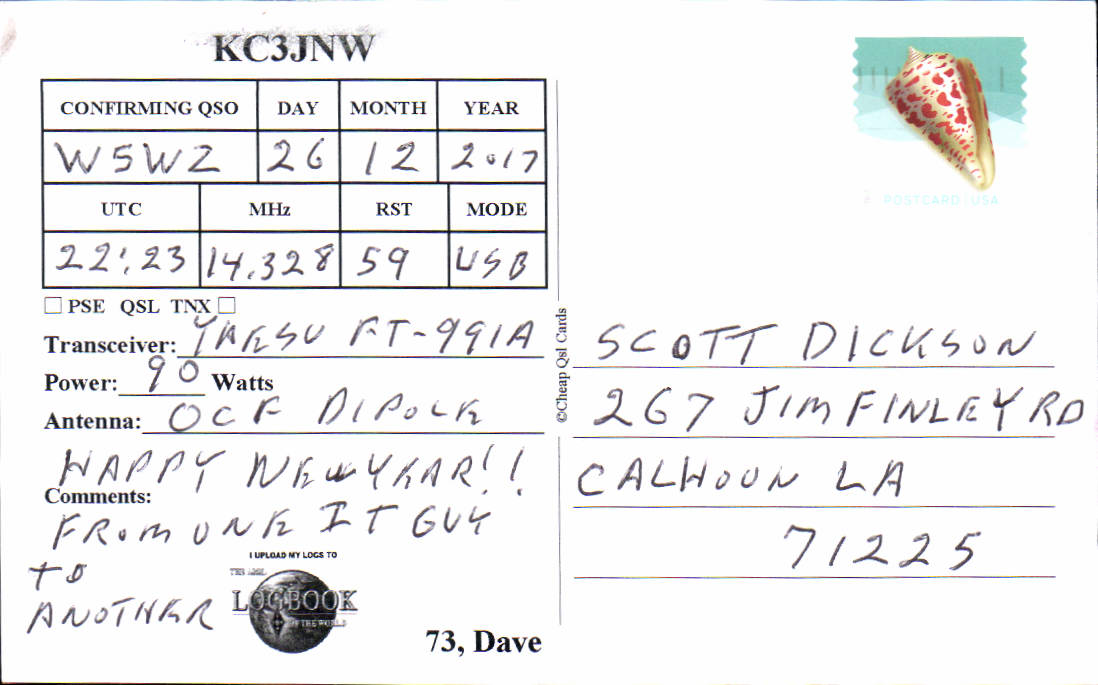 KC3JNW
CONFIRMING QSO DAY MONTH YEAR
W5WZ 26 12 2017
UTC MHz RST MODE
22:23 14.328 59 USB
☐ PSE QSL TNX ☐
Transceiver: YAESU FT-991A
Power: 90 Watts
Antenna: OCF DIPOLE
HAPPY NEW YEAR!!
Comments:
FROM ONE IT GUY
TO
ANOTHER
I UPLOAD MY LOGS TO
THE ARRL
LOGBOOK
OF THE WORLD
73, Dave
©Cheap Qsl Cards
POSTCARD | USA
SCOTT DICKSON
267 JIM FINLEY RD
CALHOUN LA
71225